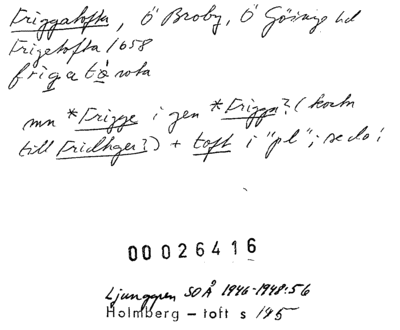 Friggatofta, Ö Broby, Ö Göinge hd
Frigetofta 1658
frigatòvta
mn *Frigge i gen *Frigga? (kortn
till Fridhger?) + toft i "pl"; se do;
00026416
Ljunggren SOÅ 1946-1948:56
Holmberg – toft s 195